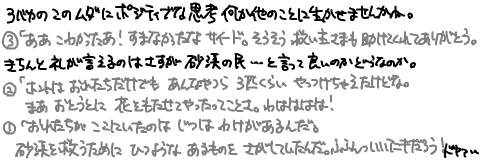 3バカの このムダに ポジティブな 思考 何か他のことに 生かせませんかね。
③「ああ こわかったあ! すまなかったな サイード。 そうそう 救い主さまも 助けてくれて ありがとう。
きちんと 礼が 言えるのは さすが 砂漠の民… と言って 良いのか どうなのか。
②「ホントは おれたちだけでも あんなやつら 3匹くらい やっつけちゃえたけどな。
まあ おとうとに 花をもたせて やったってことさ。 わはははは!
①「おれたちが ここにいたのは じつは わけが あるんだ。
砂漠を 救うために ひつような あるものを さがしていたんだ。 ふふんっ いいたきだろう! ドヤァ